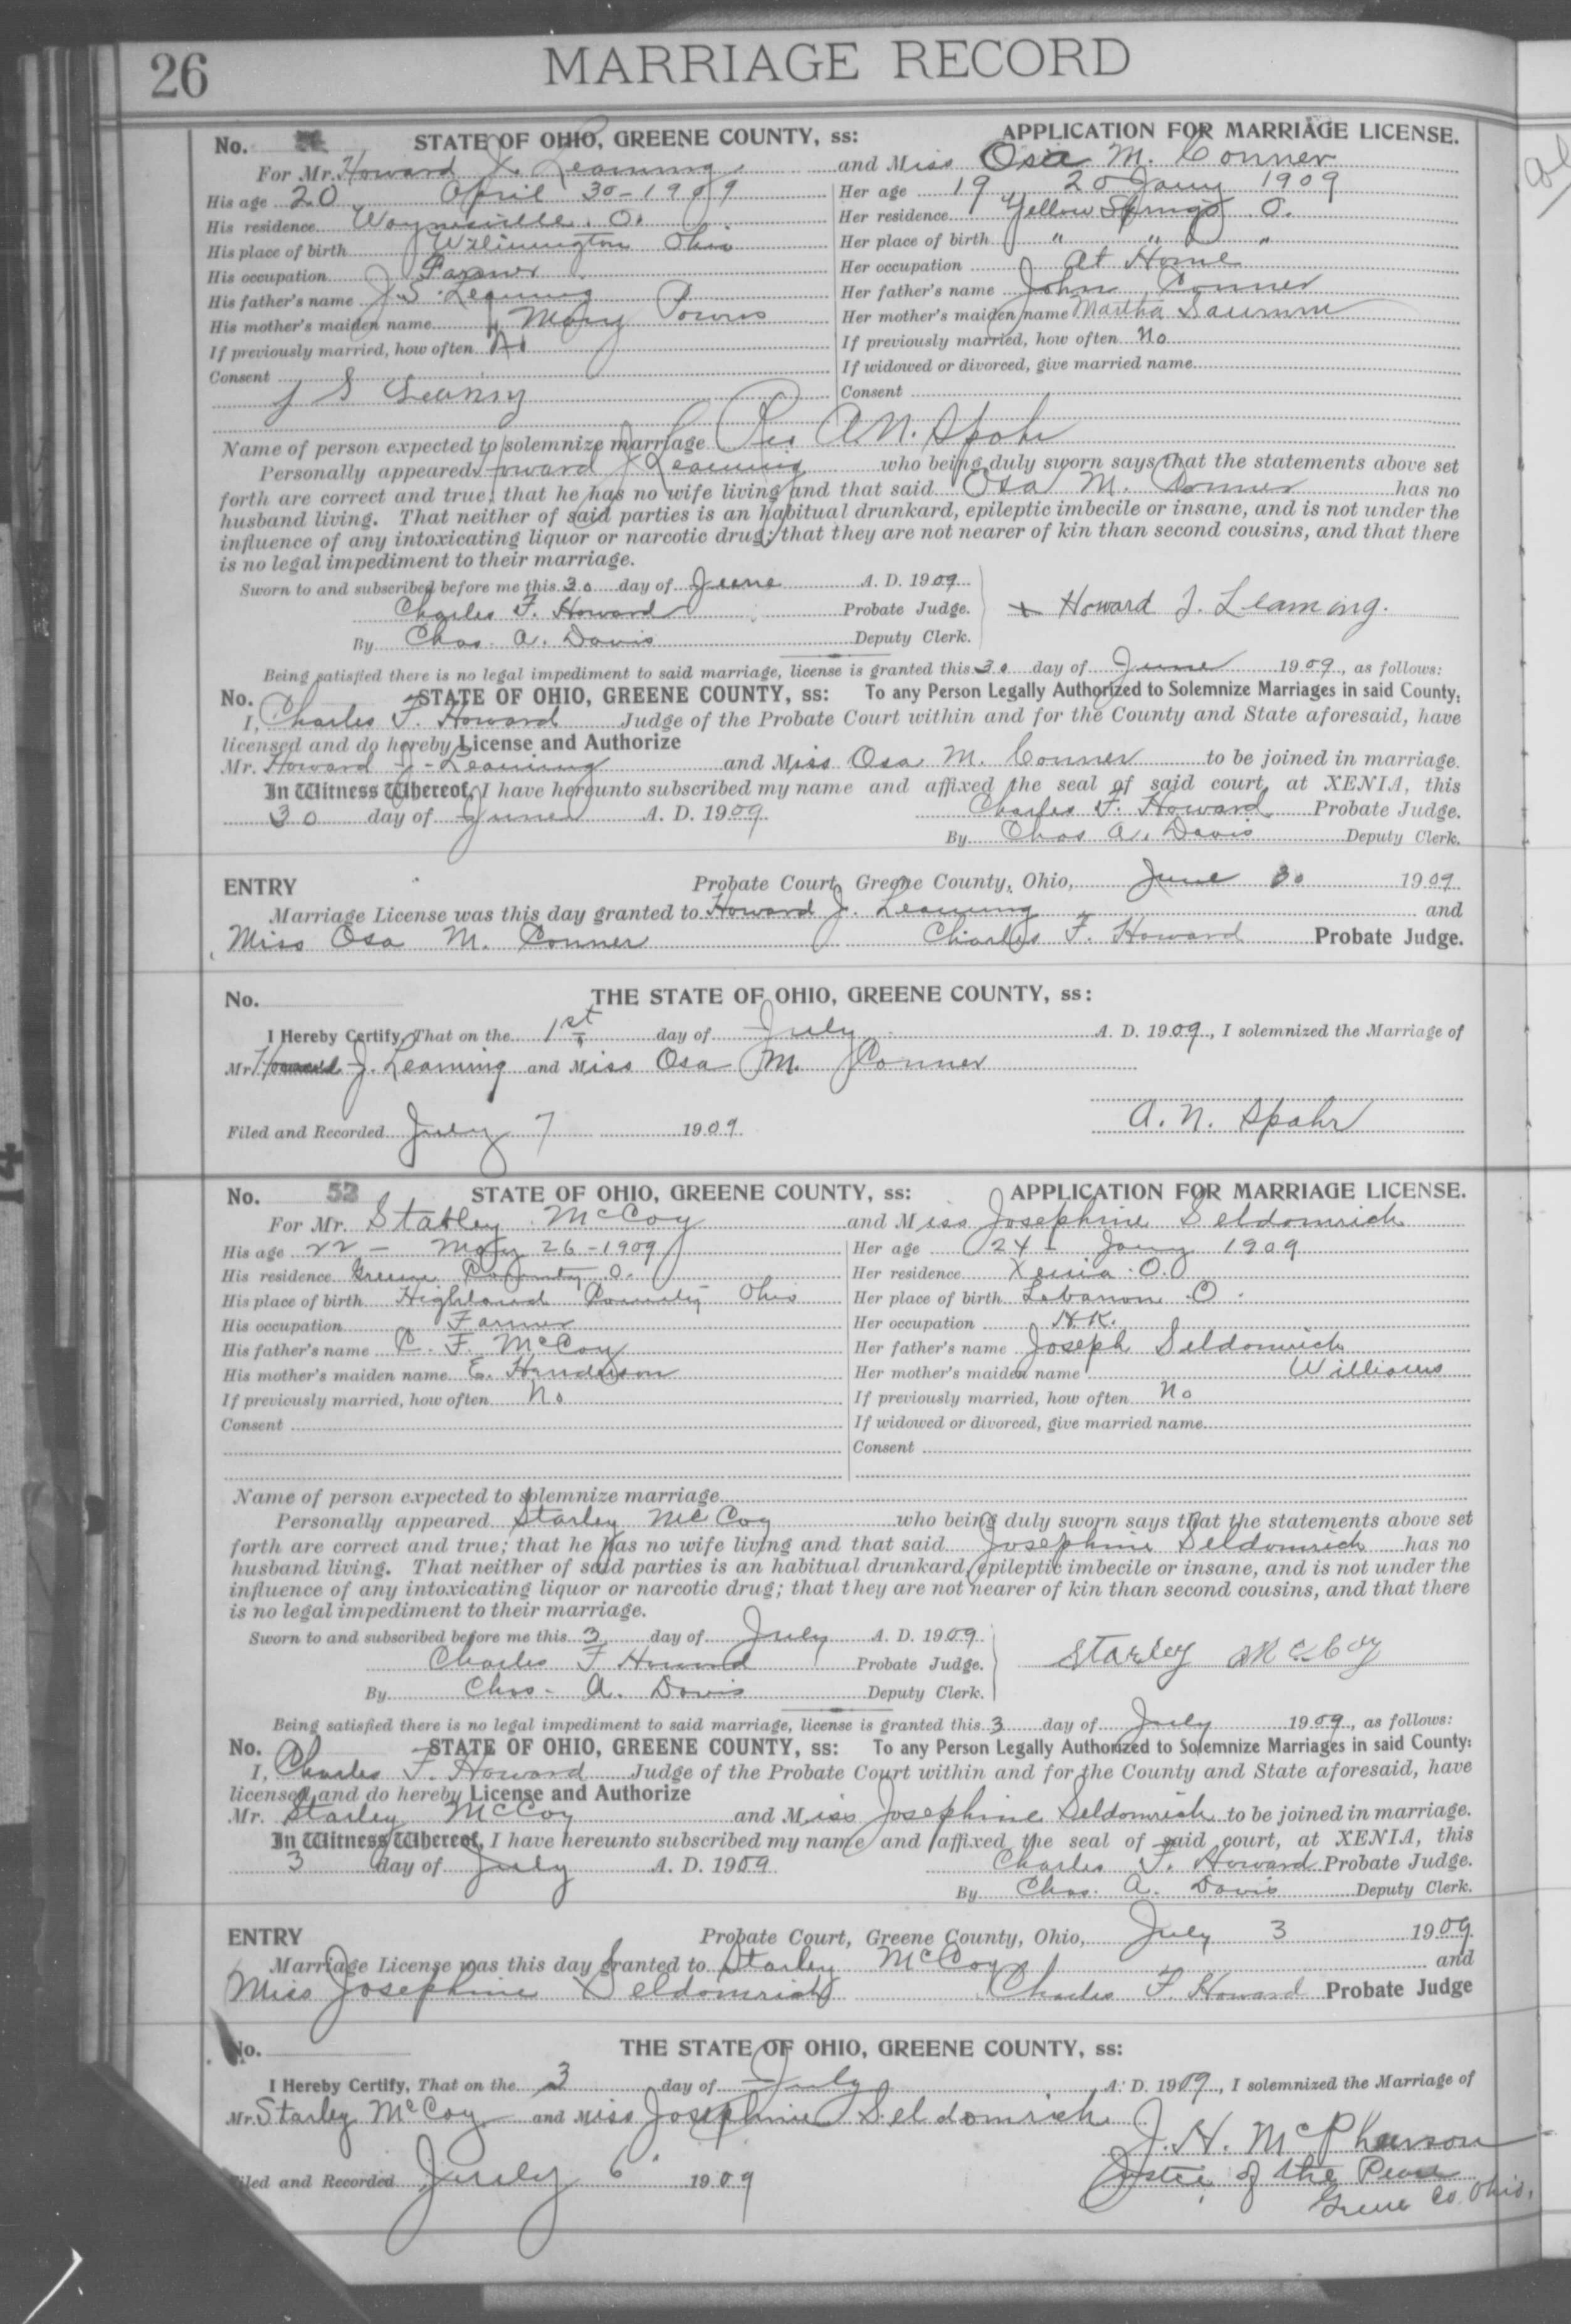 26
MARRIAGE RECORD
No. STATE OF OHIO, GREENE COUNTY, ss: APPLICATION FOR MARRIAGE LICENSE.
For Mr. Howard J. Leaming and Miss Osa M. Conner
His age 20 April 30-1909 Her age 19 20 Jany 1909
His residence Waynesville. O. Her residence Yellow Springs O.
His place of birth Wilmington Ohio Her place of birth " " "
His occupation Farmer Her occupation At Home
His father's name J. S. Leaming Her father's name John Conner
His mother's maiden name Mary Her mother's maiden name Martha
If previously married, how often No If previously married, how often No
Consent If widowed or divorced, give married name
J S Leaming Consent
Name of person expected to solemnize marriage Rev A. N. Spahr
Personally appeared Howard J Leaming who being duly sworn says that the statements above set
forth are correct and true; that he has no wife living and that said Osa M. Conner has no
husband living. That neither of said parties is an habitual drunkard, epileptic imbecile or insane, and is not under the
influence of any intoxicating liquor or narcotic drug; that they are not nearer of kin than second cousins, and that there
is no legal impediment to their marriage.
Sworn to and subscribed before me this 30 day of June A. D. 1909
Charles F. Howard Probate Judge. x Howard J. Leaming.
By Chas. A. Davis Deputy Clerk.
Being satisfied there is no legal impediment to said marriage, license is granted this 30 day of June 1909, as follows:
No. STATE OF OHIO, GREENE COUNTY, ss: To any Person Legally Authorized to Solemnize Marriages in said County:
I, Charles F. Howard Judge of the Probate Court within and for the County and State aforesaid, have
licensed and do hereby License and Authorize
Mr. Howard J. Leaming and Miss Osa M. Conner to be joined in marriage.
In Witness Whereof, I have hereunto subscribed my name and affixed the seal of said court, at XENIA, this
30 day of June A. D. 1909. Charles F. Howard Probate Judge.
By Chas A. Davis Deputy Clerk.
ENTRY Probate Court, Greene County, Ohio, June 30 1909
Marriage License was this day granted to Howard J. Leaming and
Miss Osa M. Conner Charles F. Howard Probate Judge.
No. THE STATE OF OHIO, GREENE COUNTY, ss:
I Hereby Certify, That on the 1st day of July A. D. 1909, I solemnized the Marriage of
Mr. Howard J. Leaming and Miss Osa M. Conner
Filed and Recorded July 7 1909 A. N. Spahr
No. 52 STATE OF OHIO, GREENE COUNTY, ss: APPLICATION FOR MARRIAGE LICENSE.
For Mr. Starley McCoy and Miss Josephine Seldomrich
His age 22 - May 26-1909 Her age 24 - Jany 1909
His residence Greene County O. Her residence Xenia. O.
His place of birth Highland County Ohio Her place of birth Lebanon O.
His occupation Farmer Her occupation H.K.
His father's name C. F. McCoy Her father's name Joseph Seldomrich
His mother's maiden name E. Henderson Her mother's maiden name Williams
If previously married, how often No If previously married, how often No
Consent If widowed or divorced, give married name
Consent
Name of person expected to solemnize marriage
Personally appeared Starley McCoy who being duly sworn says that the statements above set
forth are correct and true; that he has no wife living and that said Josephine Seldomrich has no
husband living. That neither of said parties is an habitual drunkard, epileptic imbecile or insane, and is not under the
influence of any intoxicating liquor or narcotic drug; that they are not nearer of kin than second cousins, and that there
is no legal impediment to their marriage.
Sworn to and subscribed before me this 3 day of July A. D. 1909
Charles F Howard Probate Judge. Starley McCoy
By Chas. A. Davis Deputy Clerk.
Being satisfied there is no legal impediment to said marriage, license is granted this 3 day of July 1909, as follows:
No. STATE OF OHIO, GREENE COUNTY, ss: To any Person Legally Authorized to Solemnize Marriages in said County:
I, Charles F. Howard Judge of the Probate Court within and for the County and State aforesaid, have
licensed and do hereby License and Authorize
Mr. Starley McCoy and Miss Josephine Seldomrich to be joined in marriage.
In Witness Whereof, I have hereunto subscribed my name and affixed the seal of said court, at XENIA, this
3 day of July A. D. 1909 Charles F. Howard Probate Judge.
By Chas. A. Davis Deputy Clerk.
ENTRY Probate Court, Greene County, Ohio, July 3 1909
Marriage License was this day granted to Starley McCoy and
Miss Josephine Seldomrich Charles F. Howard Probate Judge
No. THE STATE OF OHIO, GREENE COUNTY, ss:
I Hereby Certify, That on the 3 day of July A. D. 1909, I solemnized the Marriage of
Mr. Starley McCoy and Miss Josephine Seldomrich
J. H. McPherson
Filed and Recorded July 6 1909 Justice of the Peace
Greene Co. Ohio.